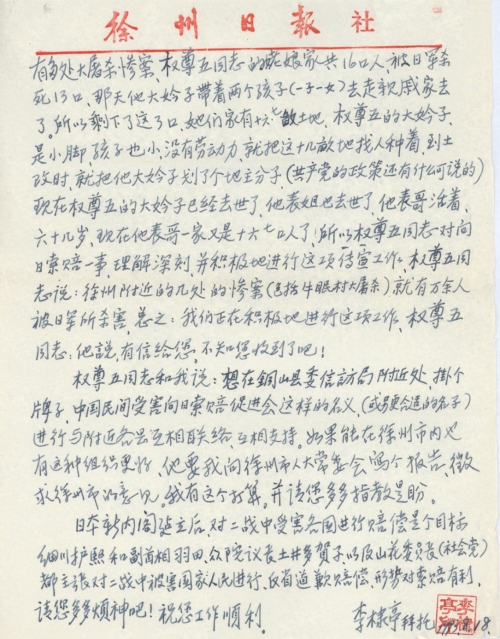 徐州日报社
有多处大屠杀惨案，权尊五同志的老娘家共16口人，被日军杀
死13口，那天他大妗子带着两个孩子(一子一女)去走亲戚家去
了。所以剩下了这3口，她们家有十六亩土地，权尊五的大妗子，
是小脚孩子也小，没有劳动力，就把这十几亩地找人种着，到土
改时就把他大妗子划了个地主分子，(共产党的政策还有什么可说的)
现在权尊五的大妗子已经去世了，他表姐也去世了，他表哥活着，
六十几岁，现在他表哥一家又是十六七口人了！所以权尊五同志一对向
日索赔一事，理解深刻，并积极地进行这项传宣工作。权尊五同
志说：徐州附近的几处的惨案(包括牛眠村大屠杀)就有万余人
被日军所杀害，总之：我们正在积极地进行这项工作，权尊五
同志，他说，有信给您，不知您收到了吧！
权尊五同志和我说：想在铜山县委信访局附近处，挂个
牌子，中国民间受害向日索赔促进会这样的名义，(或另更合适的名子)
进行与附近各县互相联络，互相支持。如果能在徐州市内也
有这种组织更好，他要我向徐州市人大常委会写个报告，征
求徐州市的意见。我有这个打算，并请您多多指教是盼。
日本新内阁建立后，对二战中受害各国进行赔偿是个目标
细川护熙和副首相羽田，众院议长土井多贺子，以及山花委员长(社会党)
都主张对二战中被害国家人民进行，反省道歉赔偿，形势对索赔有利，
请您多烦神吧！祝您工作顺利。
李棣亭 拜托 18